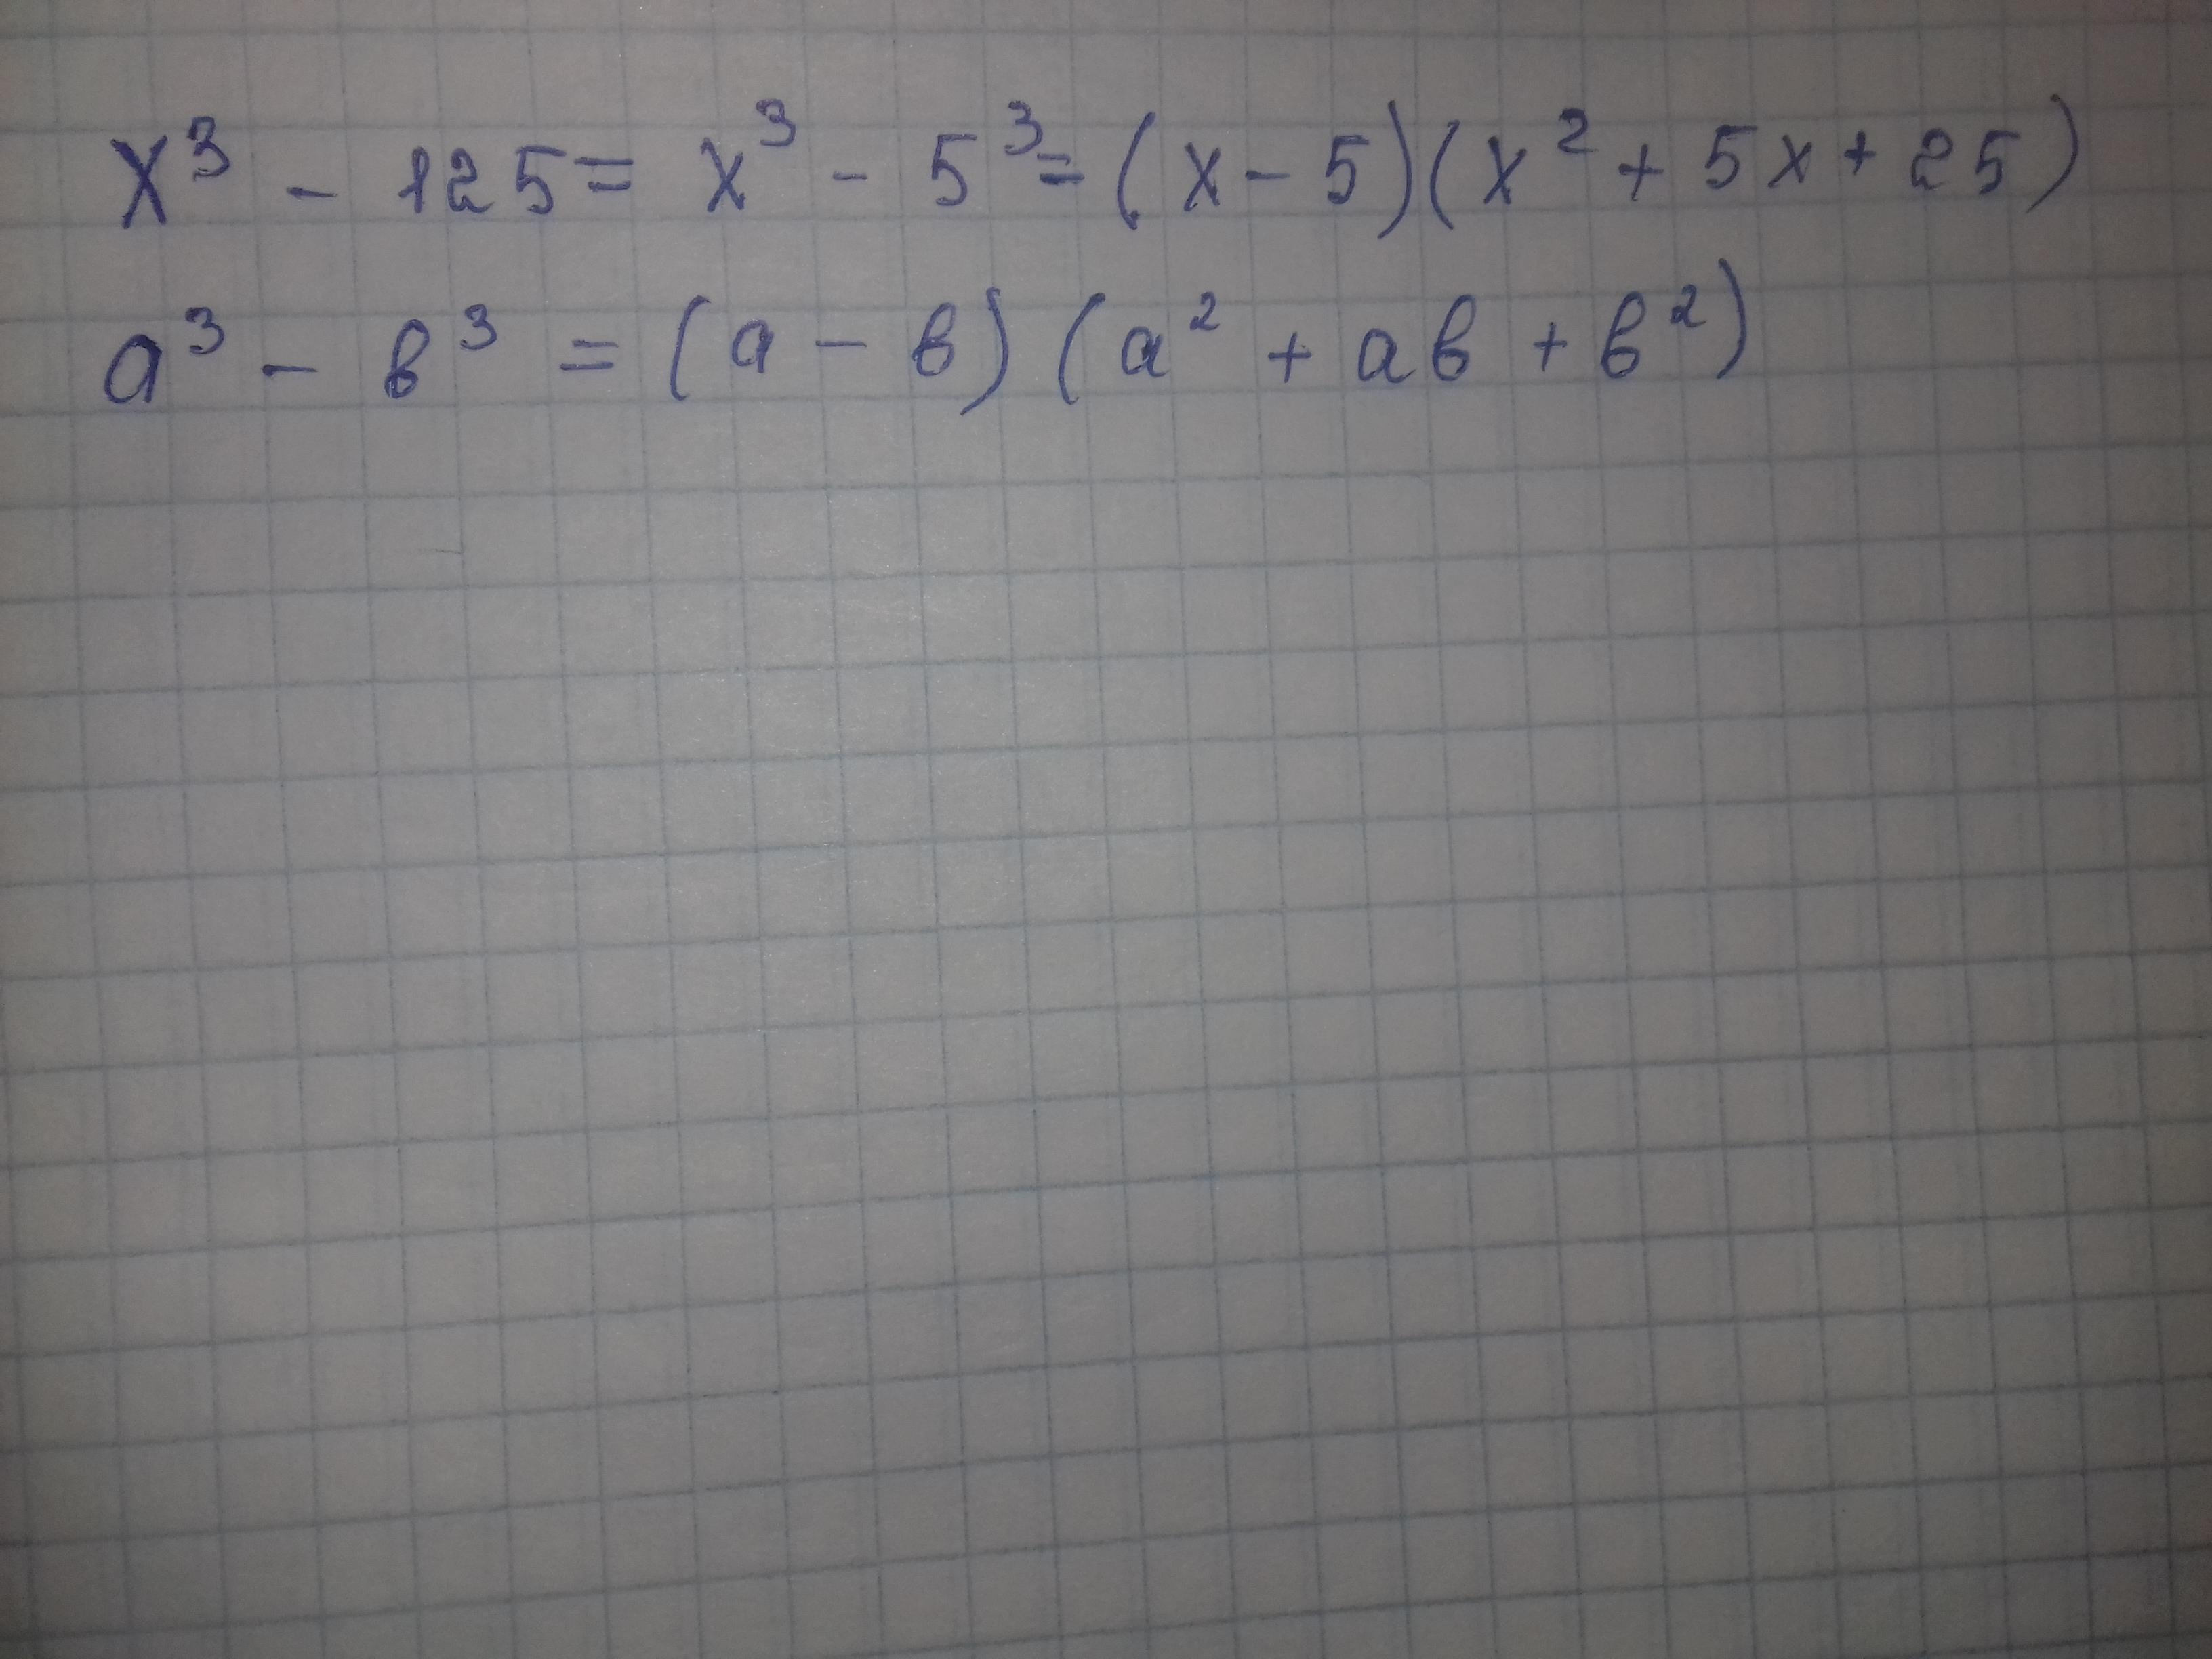 x³ - 125 = x³ - 5³ = (x - 5)(x² + 5x + 25)
a³ - в³ = (a - в) (a² + aв + в²)